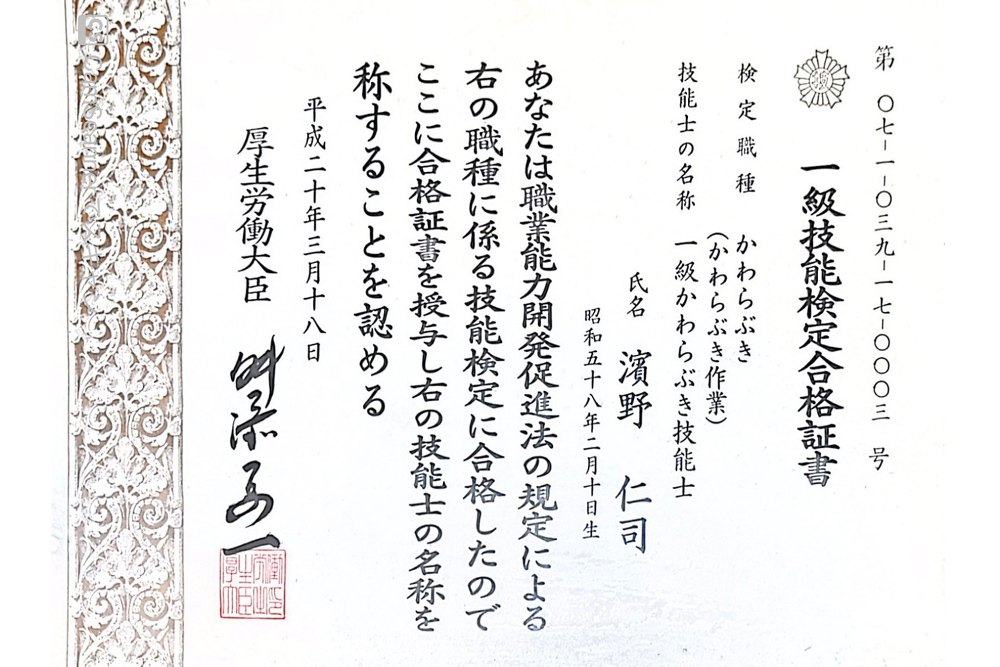 第 〇七-一-〇三九-一七-〇〇〇三 号
一級技能検定合格証書
検定職種 かわらぶき
(かわらぶき作業)
技能士の名称 一級かわらぶき技能士
氏名 濱野 仁司
昭和五十八年二月十日生
あなたは職業能力開発促進法の規定による
右の職種に係る技能検定に合格したので
ここに合格証書を授与し右の技能士の名称を
称することを認める
平成二十年三月十八日
厚生労働大臣 舛添要一